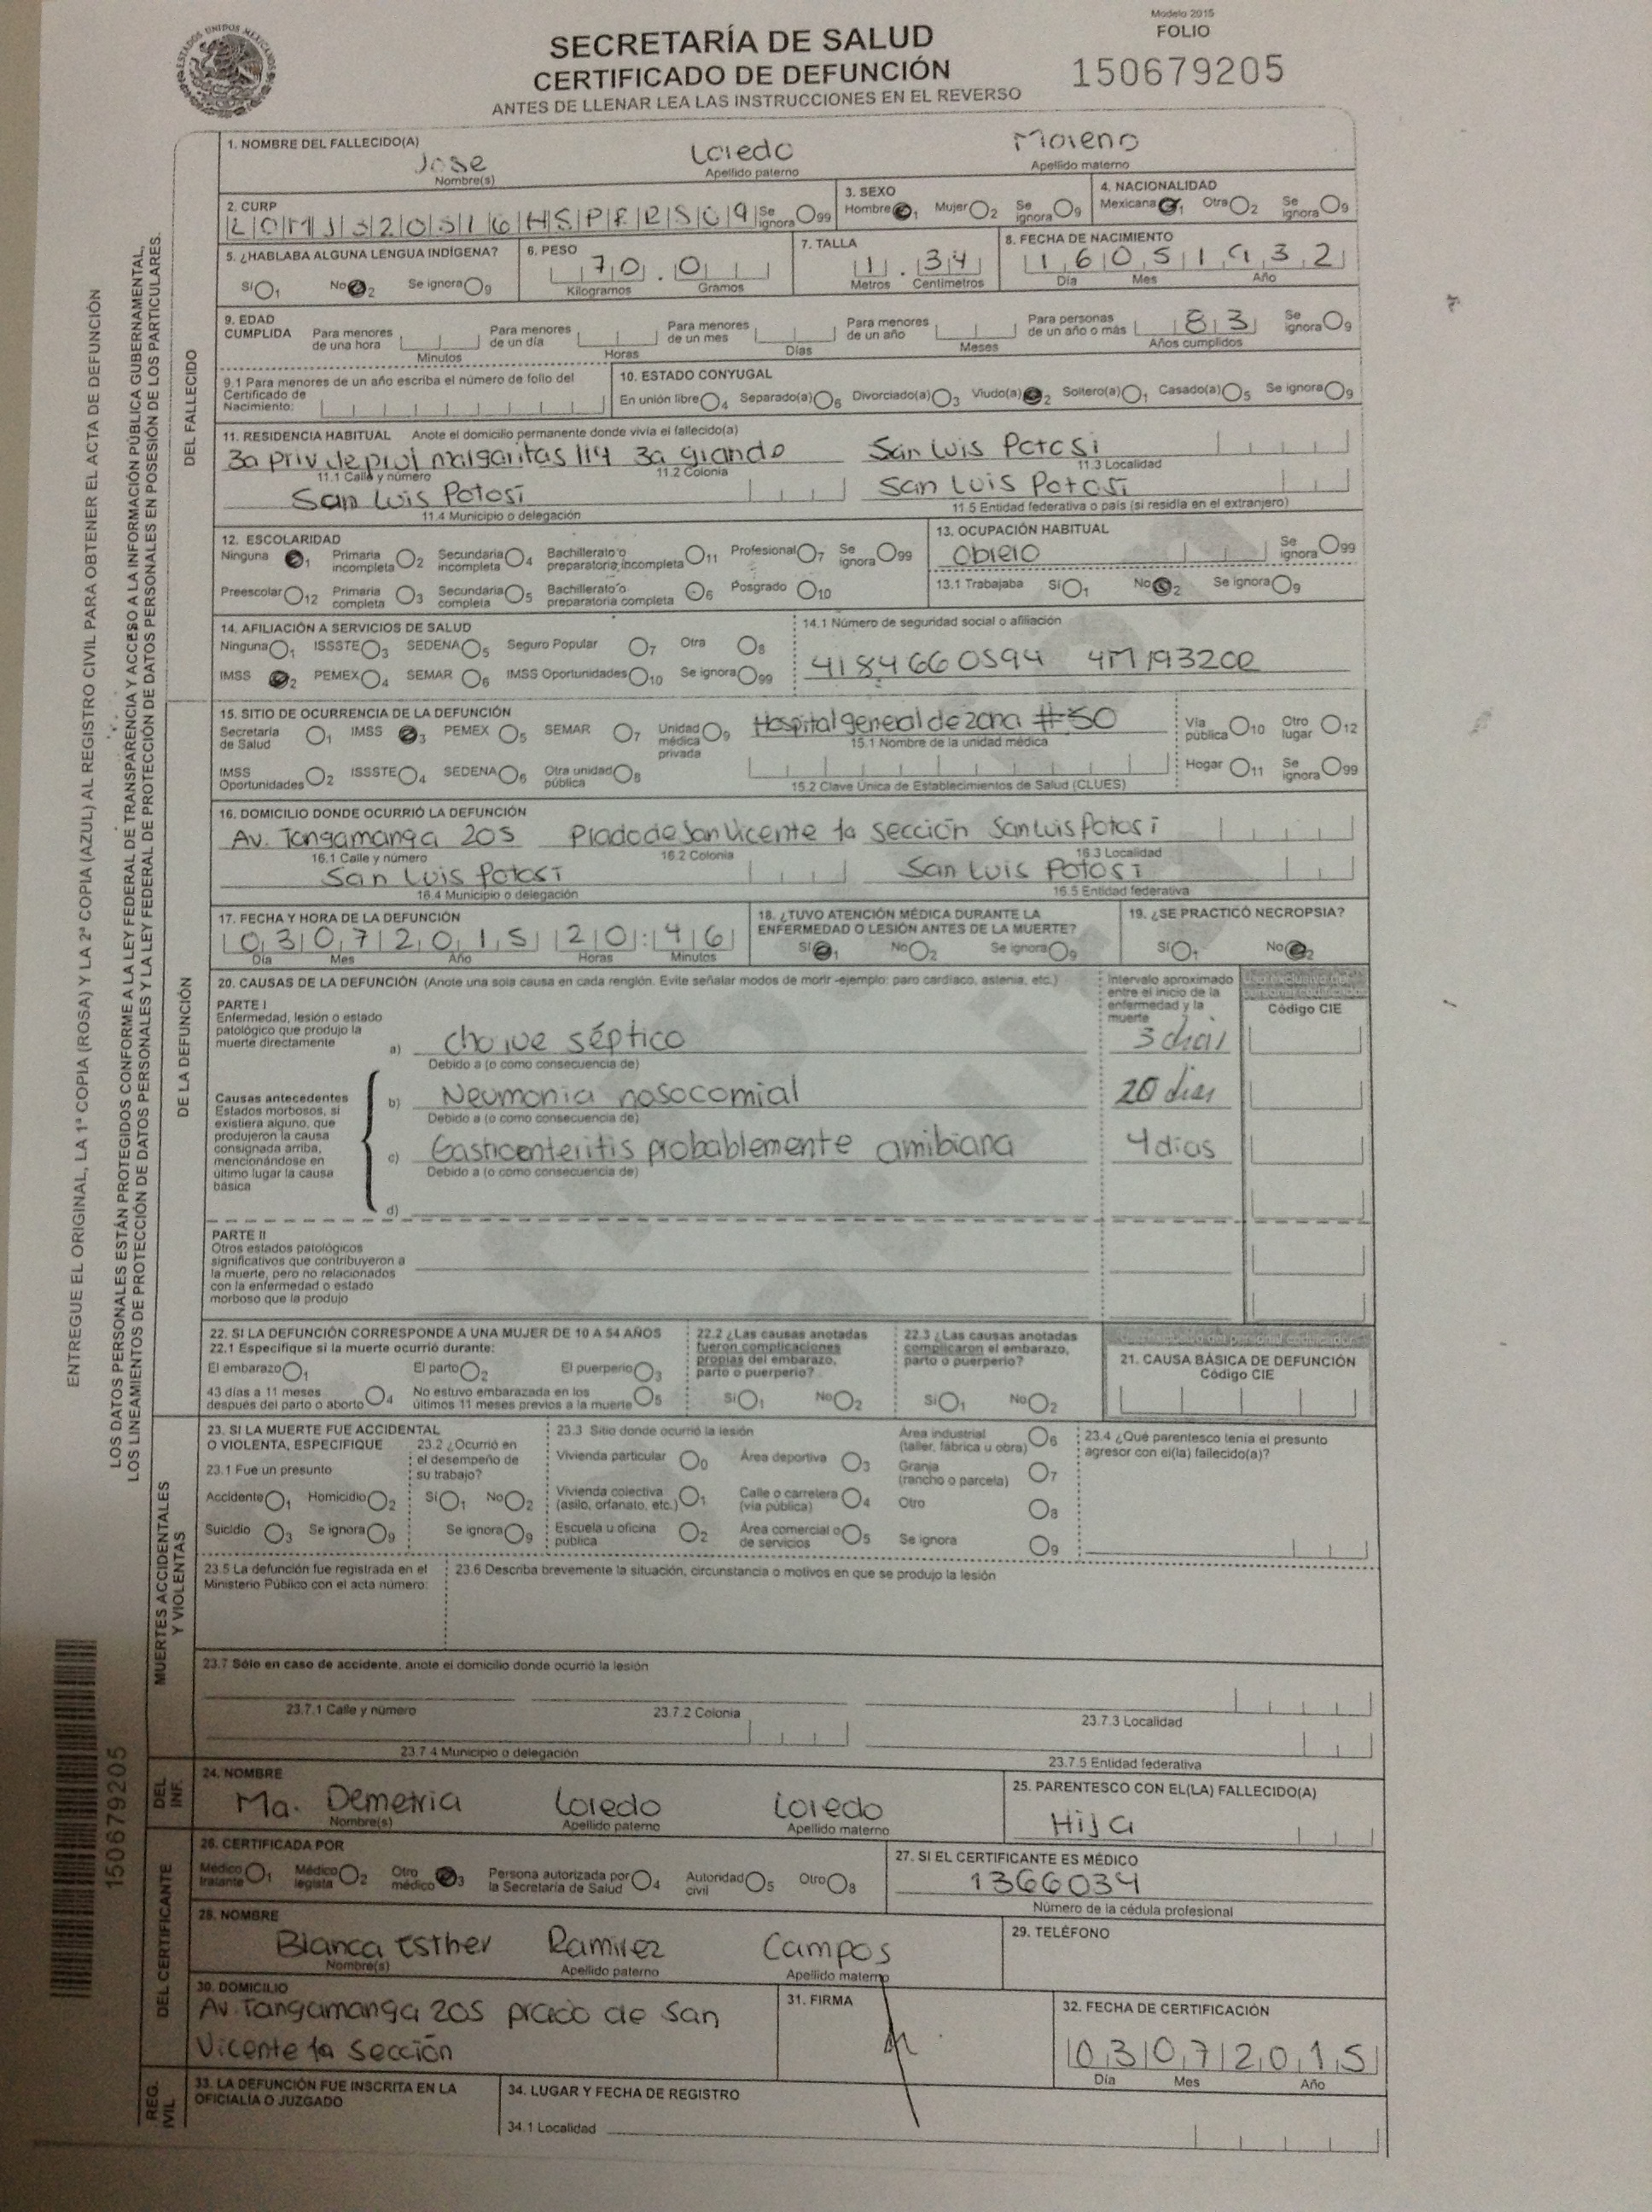 Modelo 2015
SECRETARÍA DE SALUD
FOLIO
CERTIFICADO DE DEFUNCIÓN
150679205
ANTES DE LLENAR LEA LAS INSTRUCCIONES EN EL REVERSO
ENTREGUE EL ORIGINAL, LA 1ª COPIA (ROSA) Y LA 2ª COPIA (AZUL) AL REGISTRO CIVIL PARA OBTENER EL ACTA DE DEFUNCIÓN
LOS DATOS PERSONALES ESTÁN PROTEGIDOS CONFORME A LA LEY FEDERAL DE TRANSPARENCIA Y ACCESO A LA INFORMACIÓN PÚBLICA GUBERNAMENTAL,
LOS LINEAMIENTOS DE PROTECCIÓN DE DATOS PERSONALES Y LA LEY FEDERAL DE PROTECCIÓN DE DATOS PERSONALES EN POSESIÓN DE LOS PARTICULARES.
DEL FALLECIDO
1. NOMBRE DEL FALLECIDO(A)
Jose Loredo Moreno
Nombre(s) Apellido paterno Apellido materno
2. CURP 3. SEXO 4. NACIONALIDAD
Se ignora 99 Hombre 1 Mujer 2 Se ignora 9 Mexicana 1 Otra 2 Se ignora 9
5. ¿HABLABA ALGUNA LENGUA INDÍGENA? 6. PESO 7. TALLA 8. FECHA DE NACIMIENTO
Sí 1 No 2 Se ignora 9 70.0 1.34 16051932
Kilogramos Gramos Metros Centímetros Día Mes Año
9. EDAD CUMPLIDA Para menores de una hora Para menores de un día Para menores de un mes Para menores de un año Para personas de un año o más 83 Se ignora 9
Minutos Horas Días Meses Años cumplidos
9.1 Para menores de un año escriba el número de folio del Certificado de Nacimiento:
10. ESTADO CONYUGAL
En unión libre 4 Separado(a) 6 Divorciado(a) 3 Viudo(a) 2 Soltero(a) 1 Casado(a) 5 Se ignora 9
11. RESIDENCIA HABITUAL Anote el domicilio permanente donde vivía el fallecido(a)
3a priv de prol margaritas 114 3a grande San Luis Potosi
11.1 Calle y número 11.2 Colonia 11.3 Localidad
San Luis Potosi San Luis Potosi
11.4 Municipio o delegación 11.5 Entidad federativa o país (si residía en el extranjero)
12. ESCOLARIDAD 13. OCUPACIÓN HABITUAL
Ninguna 1 Primaria incompleta 2 Secundaria incompleta 4 Bachillerato o preparatoria incompleta 11 Profesional 7 Se ignora 99 Obrero Se ignora 99
Preescolar 12 Primaria completa 3 Secundaria completa 5 Bachillerato o preparatoria completa 6 Posgrado 10 13.1 Trabajaba Sí 1 No 2 Se ignora 9
14. AFILIACIÓN A SERVICIOS DE SALUD 14.1 Número de seguridad social o afiliación
Ninguna 1 ISSSTE 3 SEDENA 5 Seguro Popular 7 Otra 8
IMSS 2 PEMEX 4 SEMAR 6 IMSS Oportunidades 10 Se ignora 99 4184660594
DE LA DEFUNCIÓN
15. SITIO DE OCURRENCIA DE LA DEFUNCIÓN
Secretaría de Salud 1 IMSS 3 PEMEX 5 SEMAR 7 Unidad médica privada 9 Hospital general de zona #50 Vía pública 10 Otro lugar 12
15.1 Nombre de la unidad médica
IMSS Oportunidades 2 ISSSTE 4 SEDENA 6 Otra unidad pública 8 Hogar 11 Se ignora 99
15.2 Clave Única de Establecimientos de Salud (CLUES)
16. DOMICILIO DONDE OCURRIÓ LA DEFUNCIÓN
Av. Tangamanga 205 Prado de San Vicente 1a sección San Luis Potosi
16.1 Calle y número 16.2 Colonia 16.3 Localidad
San Luis Potosi San Luis Potosi
16.4 Municipio o delegación 16.5 Entidad federativa
17. FECHA Y HORA DE LA DEFUNCIÓN 18. ¿TUVO ATENCIÓN MÉDICA DURANTE LA ENFERMEDAD O LESIÓN ANTES DE LA MUERTE? 19. ¿SE PRACTICÓ NECROPSIA?
03072015 20:46 Sí 1 No 2 Se ignora 9 Sí 1 No 2
Día Mes Año Horas Minutos
20. CAUSAS DE LA DEFUNCIÓN (Anote una sola causa en cada renglón. Evite señalar modos de morir -ejemplo: paro cardíaco, astenia, etc.) Intervalo aproximado entre el inicio de la enfermedad y la muerte
Código CIE
PARTE I
Enfermedad, lesión o estado patológico que produjo la muerte directamente
a) choque séptico 3 dias
Debido a (o como consecuencia de)
Causas antecedentes
Estados morbosos, si existiera alguno, que produjeron la causa consignada arriba, mencionándose en último lugar la causa básica
b) Neumonia nosocomial 20 dias
Debido a (o como consecuencia de)
c) Gastroenteritis probablemente amibiana 4 dias
Debido a (o como consecuencia de)
d)
PARTE II
Otros estados patológicos significativos que contribuyeron a la muerte, pero no relacionados con la enfermedad o estado morboso que la produjo
22. SI LA DEFUNCIÓN CORRESPONDE A UNA MUJER DE 10 A 54 AÑOS
22.1 Especifique si la muerte ocurrió durante:
El embarazo 1 El parto 2 El puerperio 3
43 días a 11 meses después del parto o aborto 4 No estuvo embarazada en los últimos 11 meses previos a la muerte 5
22.2 ¿Las causas anotadas fueron complicaciones propias del embarazo, parto o puerperio?
Sí 1 No 2
22.3 ¿Las causas anotadas complicaron el embarazo, parto o puerperio?
Sí 1 No 2
21. CAUSA BÁSICA DE DEFUNCIÓN
Código CIE
MUERTES ACCIDENTALES Y VIOLENTAS
23. SI LA MUERTE FUE ACCIDENTAL O VIOLENTA, ESPECIFIQUE
23.1 Fue un presunto
Accidente 1 Homicidio 2
Suicidio 3 Se ignora 9
23.2 ¿Ocurrió en el desempeño de su trabajo?
Sí 1 No 2
Se ignora 9
23.3 Sitio donde ocurrió la lesión
Vivienda particular 0 Área deportiva 3 Área industrial (taller, fábrica u obra) 6
Vivienda colectiva (asilo, orfanato, etc.) 1 Calle o carretera (vía pública) 4 Granja (rancho o parcela) 7
Escuela u oficina pública 2 Área comercial o de servicios 5 Otro 8
Se ignora 9
23.4 ¿Qué parentesco tenía el presunto agresor con el(la) fallecido(a)?
23.5 La defunción fue registrada en el Ministerio Público con el acta número:
23.6 Describa brevemente la situación, circunstancia o motivos en que se produjo la lesión
23.7 Sólo en caso de accidente, anote el domicilio donde ocurrió la lesión
23.7.1 Calle y número 23.7.2 Colonia 23.7.3 Localidad
23.7.4 Municipio o delegación 23.7.5 Entidad federativa
150679205
DEL INF.
24. NOMBRE 25. PARENTESCO CON EL(LA) FALLECIDO(A)
Ma. Demetria Loredo Loredo Hija
Nombre(s) Apellido paterno Apellido materno
DEL CERTIFICANTE
26. CERTIFICADA POR 27. SI EL CERTIFICANTE ES MÉDICO
Médico tratante 1 Médico legista 2 Otro médico 3 Persona autorizada por la Secretaría de Salud 4 Autoridad civil 5 Otro 8 1366034
Número de la cédula profesional
28. NOMBRE 29. TELÉFONO
Blanca Esther Ramirez Campos
Nombre(s) Apellido paterno Apellido materno
30. DOMICILIO 31. FIRMA 32. FECHA DE CERTIFICACIÓN
Av. Tangamanga 205 prado de San
Vicente 1a Sección 03072015
Día Mes Año
REG. CIVIL
33. LA DEFUNCIÓN FUE INSCRITA EN LA OFICIALÍA O JUZGADO
34. LUGAR Y FECHA DE REGISTRO
34.1 Localidad